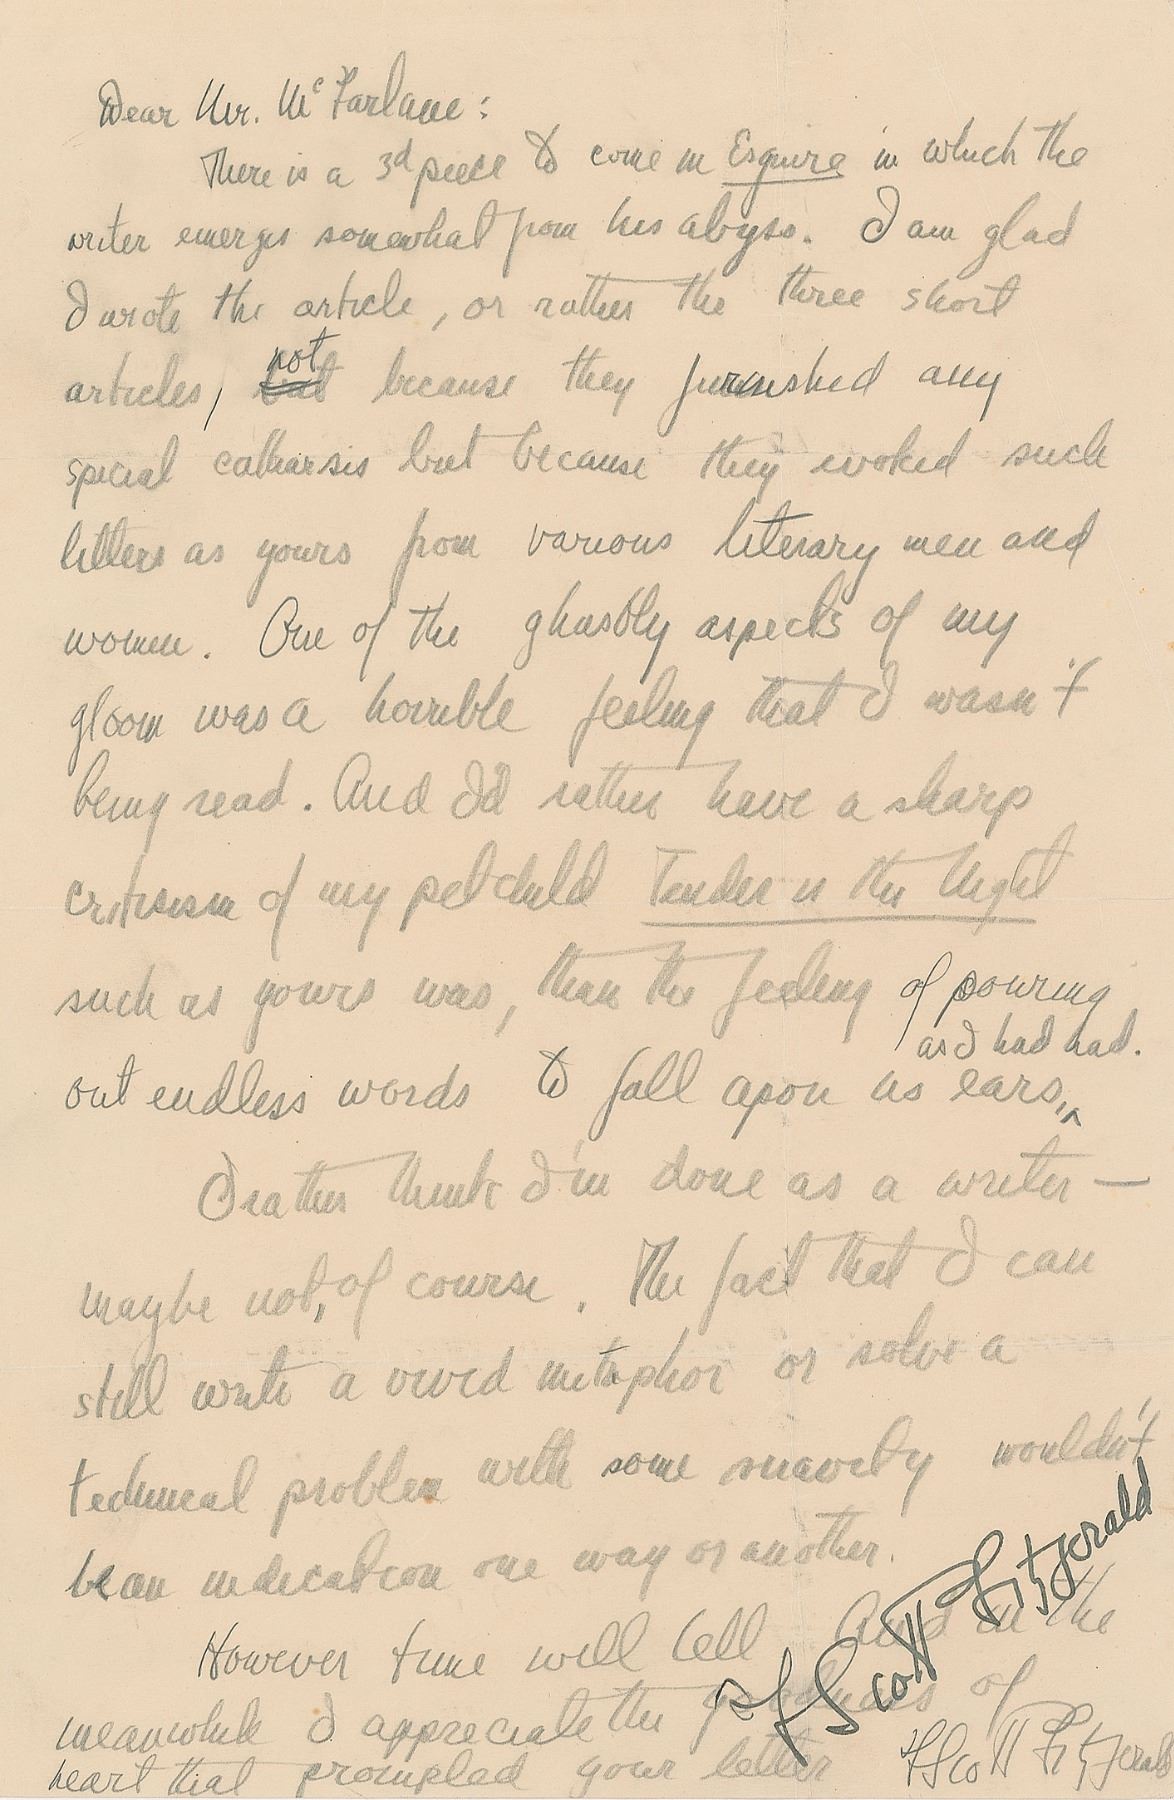 Dear Mr. McFarlane:
There is a 3d piece to come in Esquire in which the
writer emerges somewhat from his abyss. I am glad
I wrote the article, or rather the three short
not
articles, but because they furnished any
special catharsis but because they evoked such
letters as yours from various literary men and
women. One of the ghastly aspects of my
gloom was a horrible feeling that I wasn't
being read. And I'd rather have a sharp
criticism of my pet child Tender is the Night
such as yours was, than the feeling of pouring
as I had had.
out endless words to fall upon as ears,
I rather think I'm done as a writer —
maybe not, of course. The fact that I can
still write a vivid metaphor or solve a
technical problem with some suavity wouldn't
be an indication one way or another.
However time will tell And in the
meanwhile I appreciate the goodness of
heart that prompted your letter
F Scott Fitzgerald
F Scott Fitzgerald